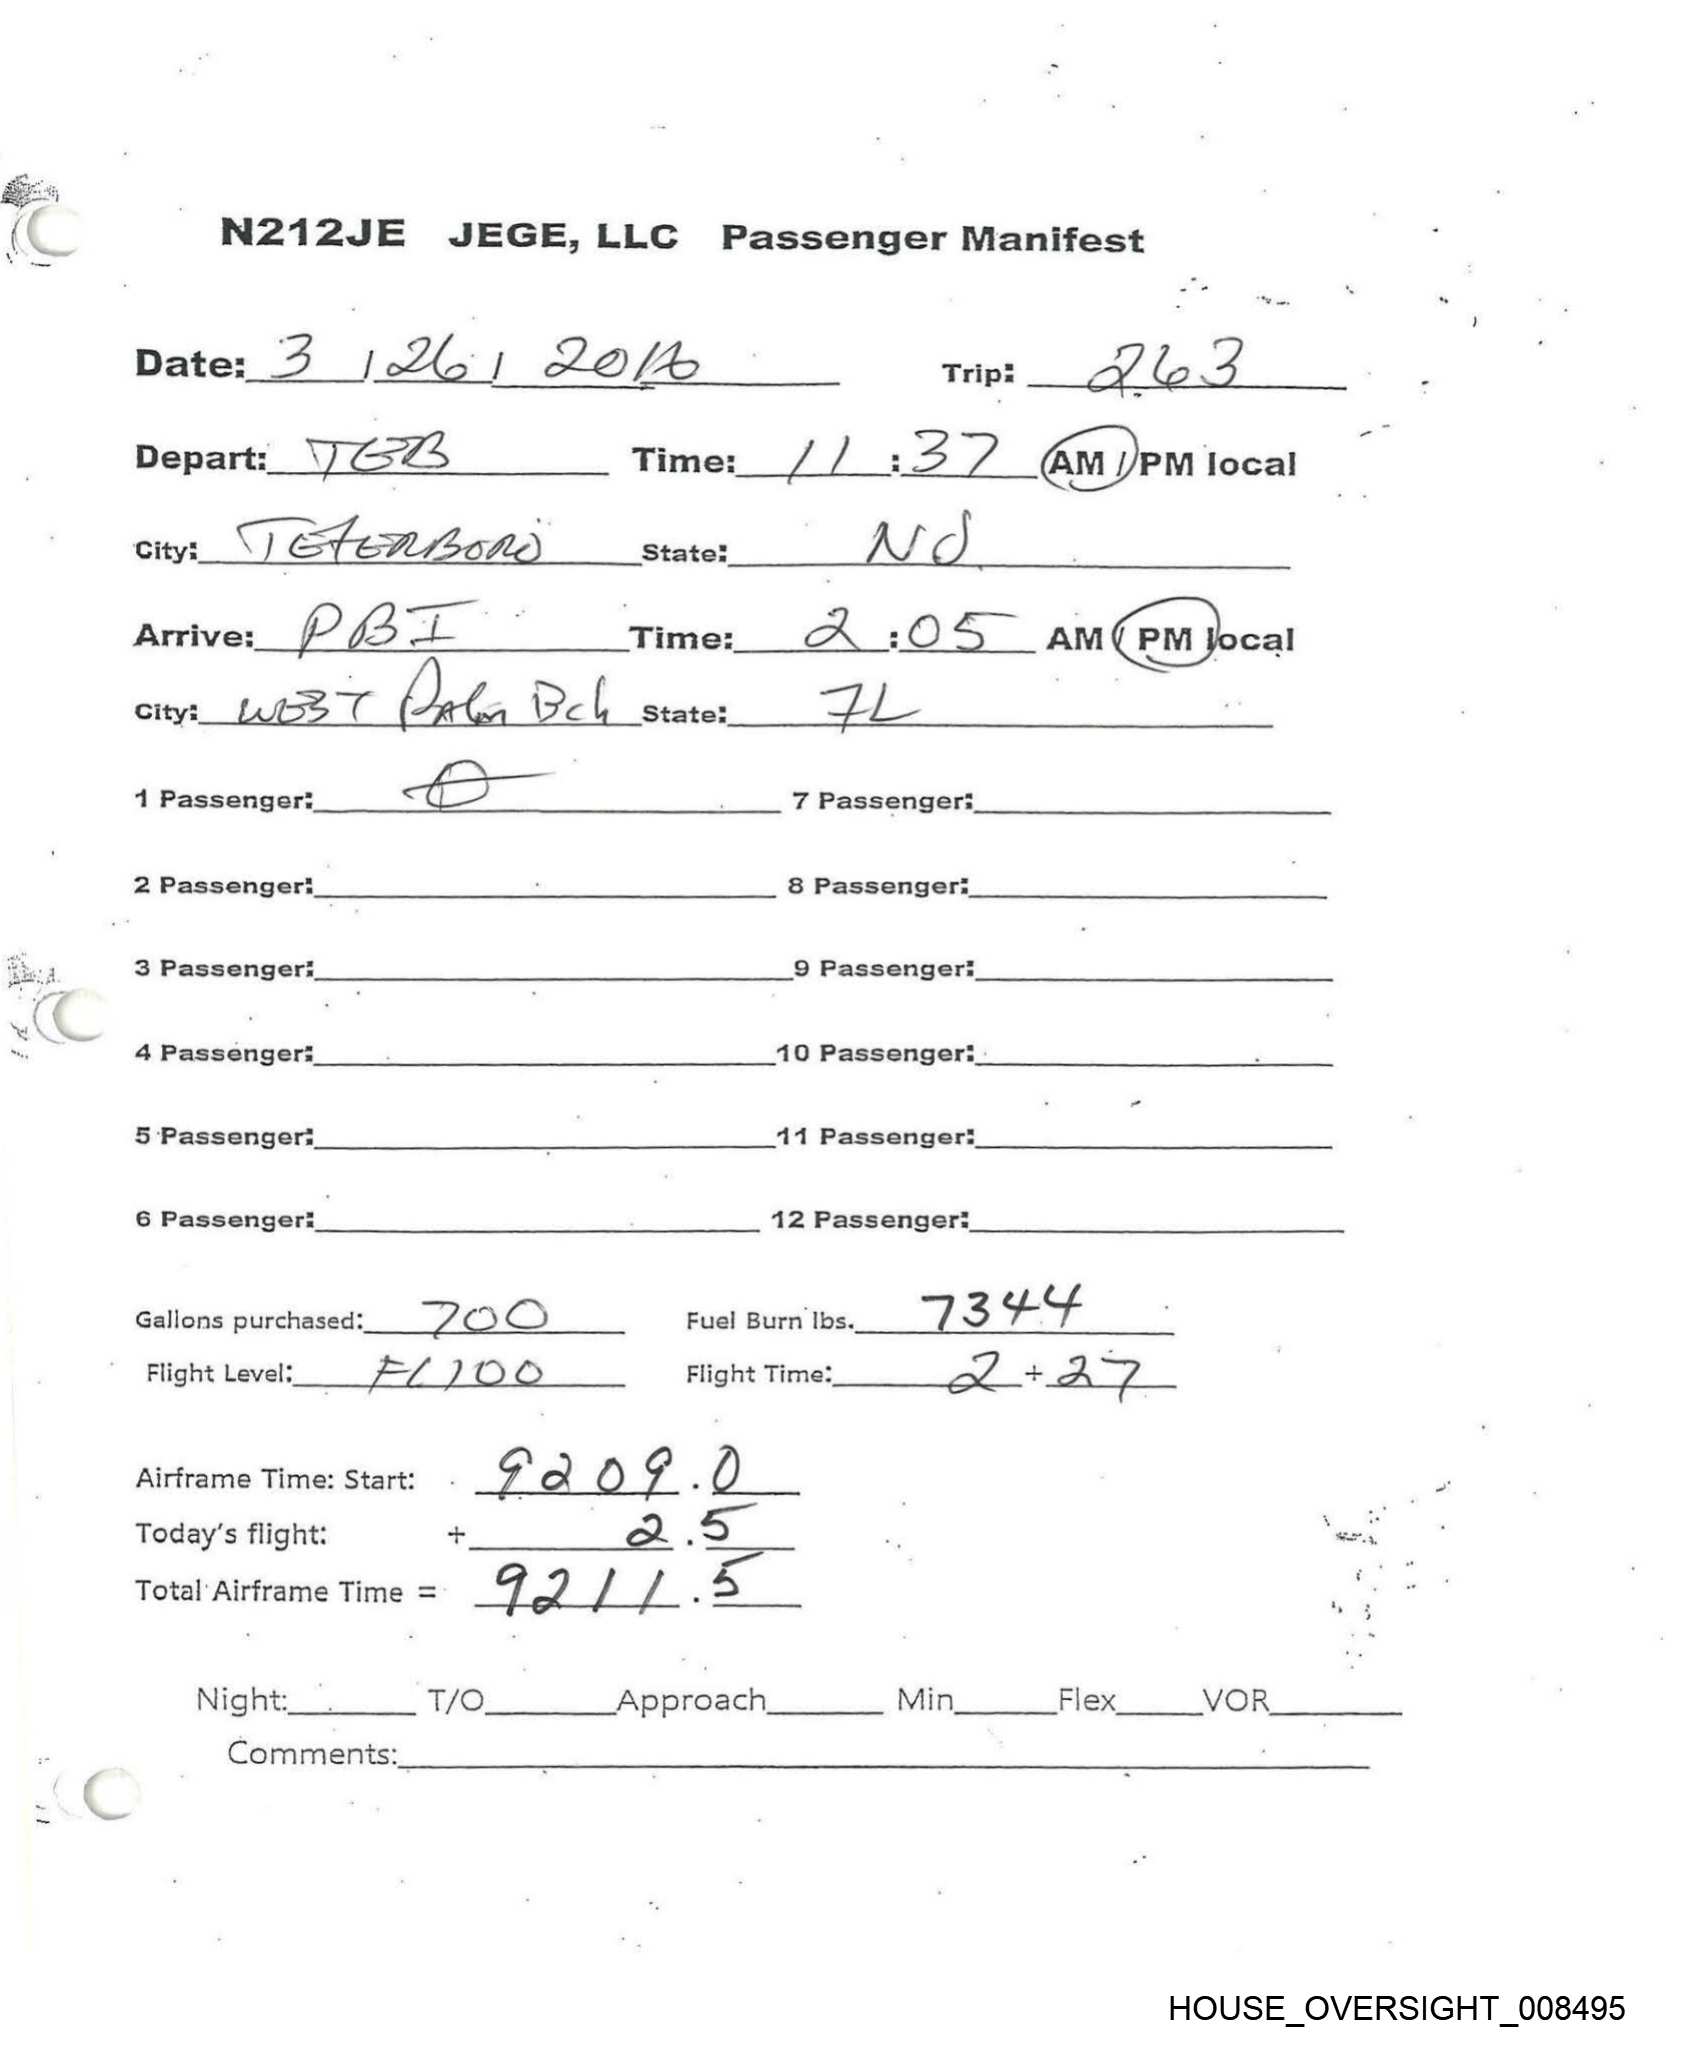 N212JE JEGE, LLC Passenger Manifest
Date: 3 / 26 / 2016 Trip: 263
Depart: TEB Time: 11 : 37 AM / PM local
City: TETERBORO State: NJ
Arrive: PBI Time: 2 : 05 AM / PM local
City: WEST Palm Bch State: FL
1 Passenger: 0 7 Passenger:
2 Passenger: 8 Passenger:
3 Passenger: 9 Passenger:
4 Passenger: 10 Passenger:
5 Passenger: 11 Passenger:
6 Passenger: 12 Passenger:
Gallons purchased: 700 Fuel Burn lbs. 7344
Flight Level: Flight Time: 2 + 27
Airframe Time: Start: 9209.0
Today's flight: + 2.5
Total Airframe Time = 9211.5
Night: T/O Approach Min Flex VOR
Comments:
HOUSE_OVERSIGHT_008495